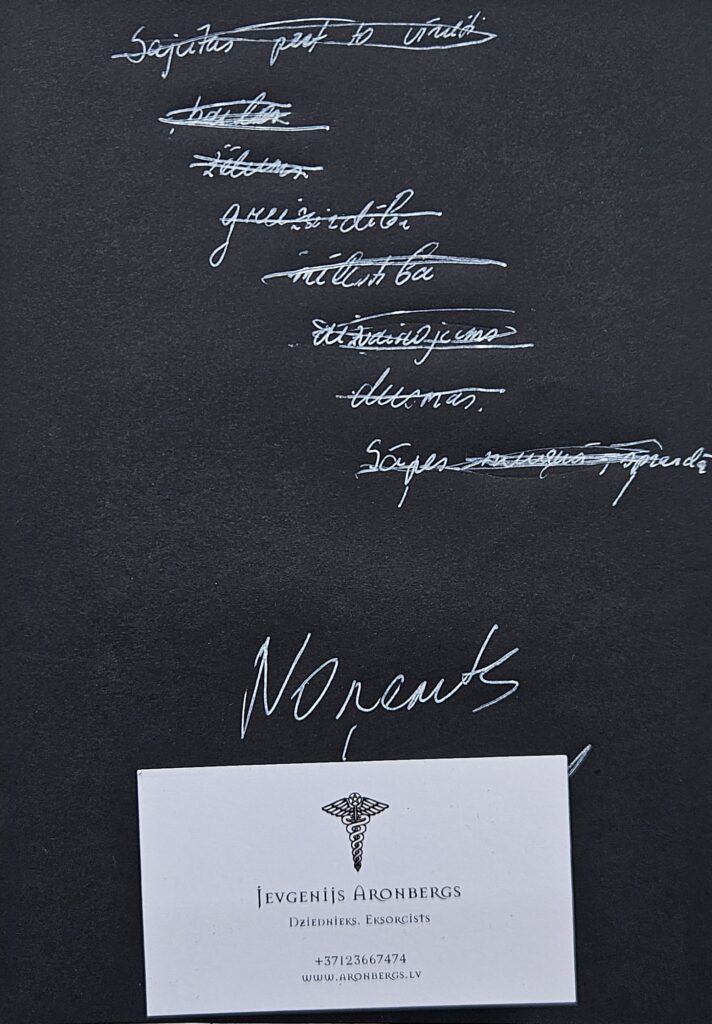 Sajūtas pret to vīrieti
bailes
žēlums
greizsirdība
mīlestība
aizvainojums
dusmas.
Sāpes mugurā, sprandā
Noņemts
JEVGENIJS ARONBERGS
DZIEDNIEKS. EKSORCISTS
+37123667474
WWW.ARONBERGS.LV